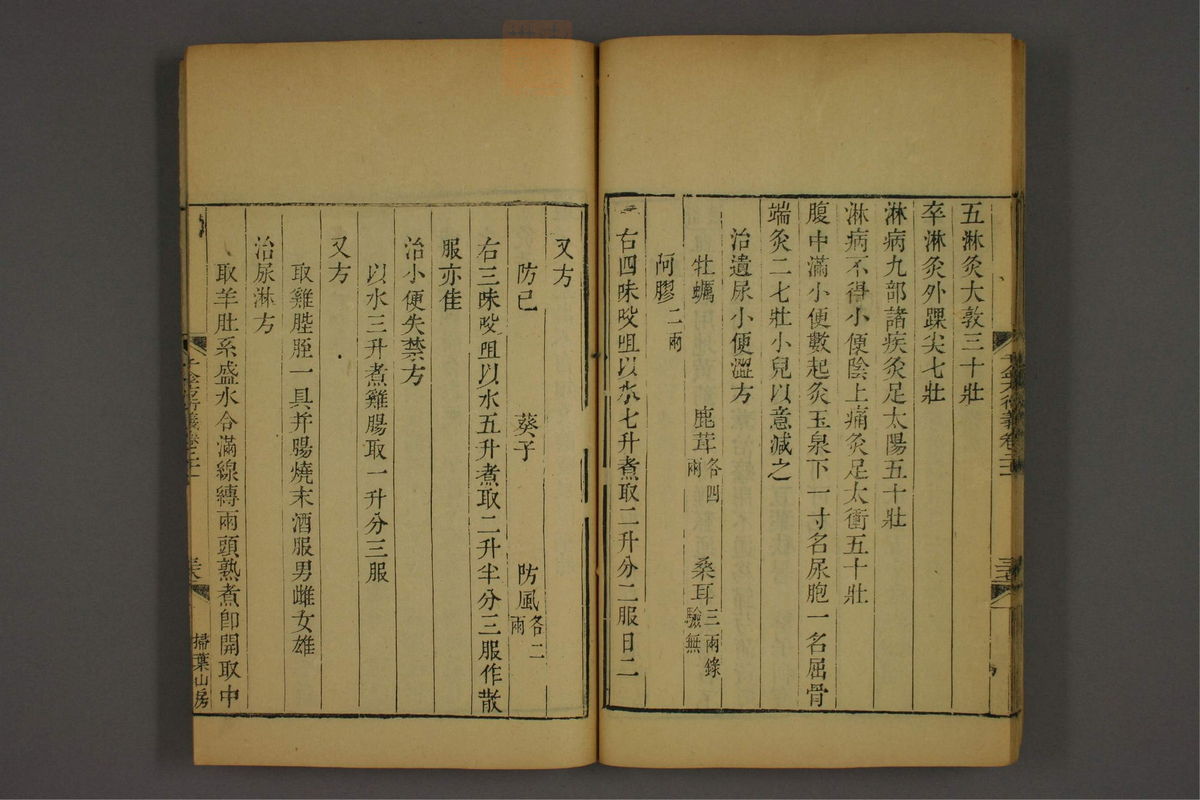 五淋灸大敦三十壯
卒淋灸外踝尖七壯
淋病九部諸疾灸足太陽五十壯
淋病不得小便陰上痛灸足太衝五十壯
腹中滿小便數起灸玉泉下一寸名尿胞一名屈骨
端灸二七壯小兒以意減之
治遺尿小便澀方
牡蠣 鹿茸各四兩 桑耳三兩錄驗無
阿膠二兩
右四味㕮咀以水七升煮取二升分二服日二
又方
防已 葵子 防風各二兩
右三味㕮咀以水五升煮取二升半分三服作散
服亦佳
治小便失禁方
以水三升煮雞腸取一升分三服
又方
取雞䏶胵一具并腸燒末酒服男雌女雄
治尿淋方
取羊肚系盛水令滿線縛兩頭熟煮卽開取中
千金方衍義卷二十一
掃葉山房